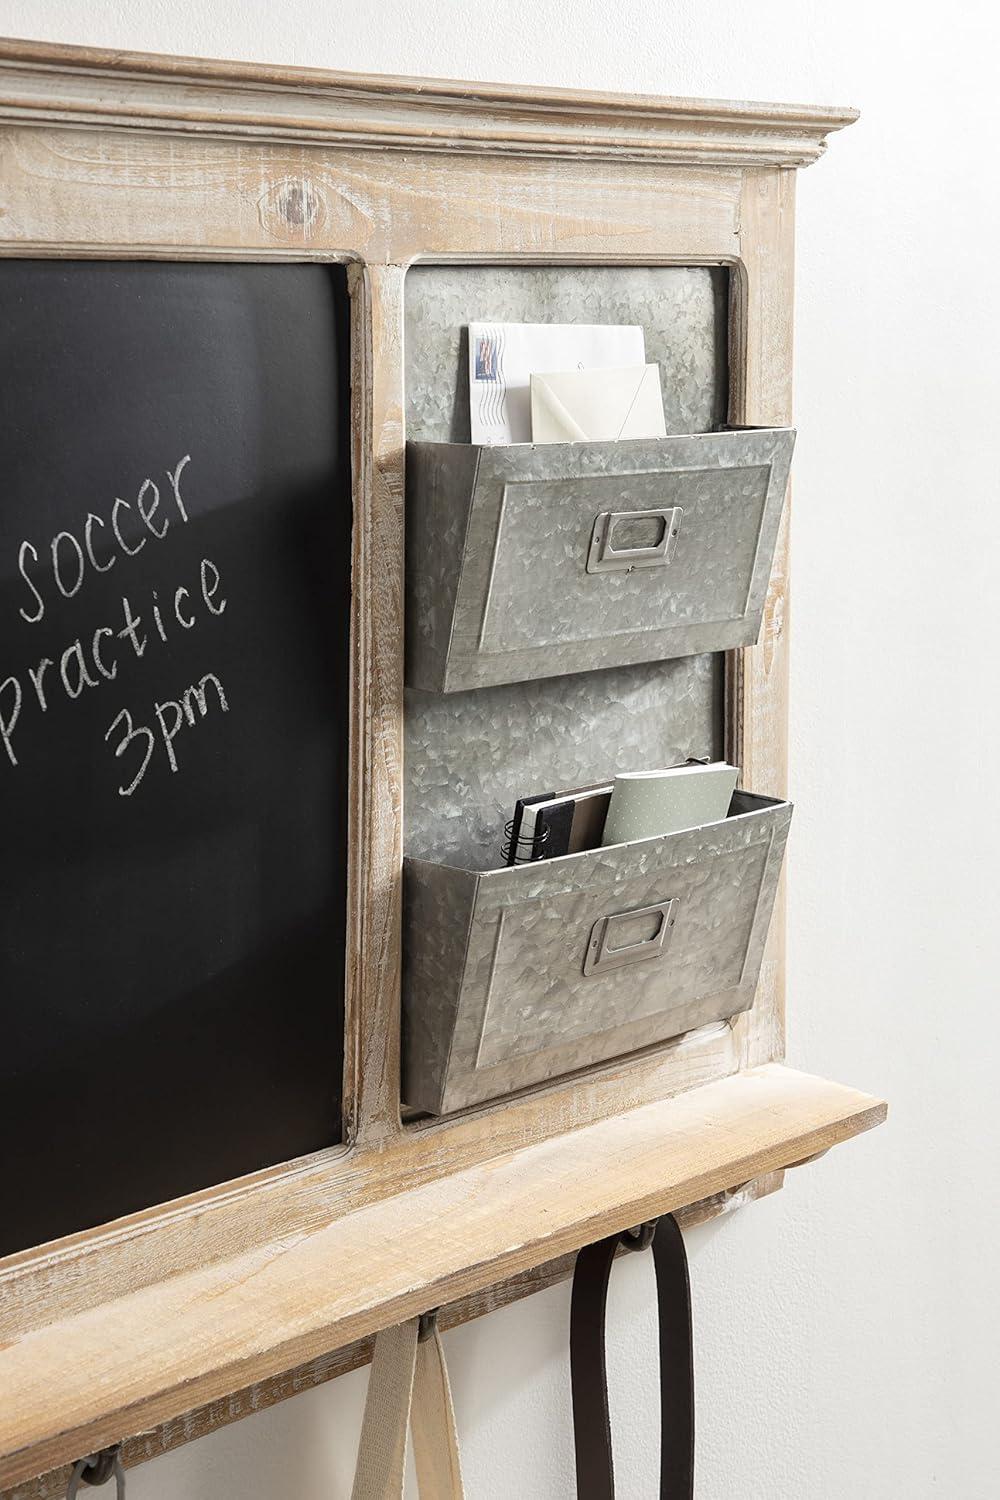 soccer
practice
3pm